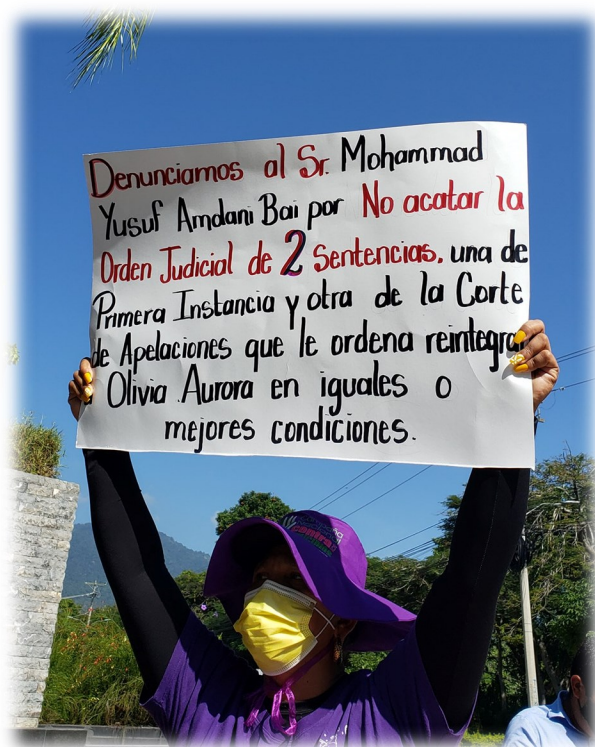 Denunciamos al Sr. Mohammad
Yusuf Amdani Bai por No acatar la
Orden Judicial de 2 Sentencias, una de
Primera Instancia y otra de la Corte
de Apelaciones que le ordena reintegrar
Olivia Aurora en iguales o
mejores condiciones.
contra